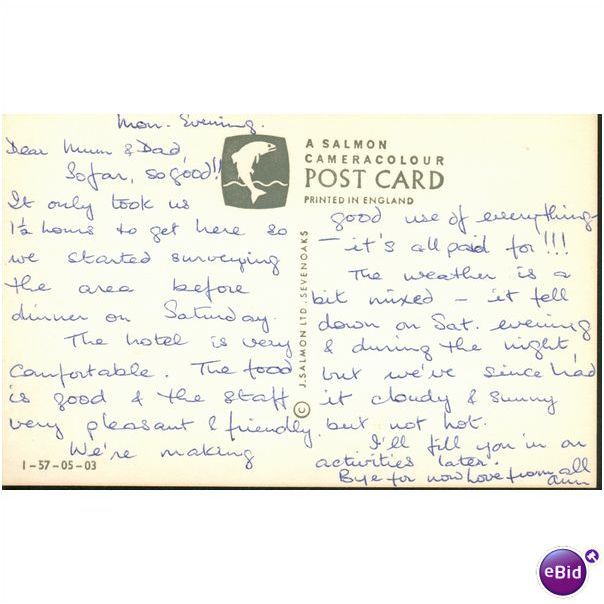 Mon. Evening.
Dear Mum & Dad
So far, so good!!
It only took us
1½ hours to get here so
we started surveying
the area before
dinner on Saturday.
The hotel is very
comfortable. The food
is good & the staff
very pleasant & friendly.
We're making
1-57-05-03
A SALMON
CAMERACOLOUR
POST CARD
PRINTED IN ENGLAND
© J. SALMON LTD. SEVENOAKS
good use of everything
– it's all paid for!!!
The weather is a
bit mixed – it fell
down on Sat. evening
& during the night
but we've since had
it cloudy & sunny
but not hot.
I'll fill you in on
activities later.
Bye for now Love from all
Ann
eBid